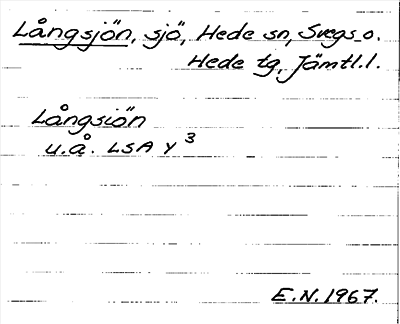 Långsjön, sjö, Hede sn, Svegs o.
Hede tg, Jämtl.l.
Långsiön
u.å. LSA Y³
E.N. 1967.